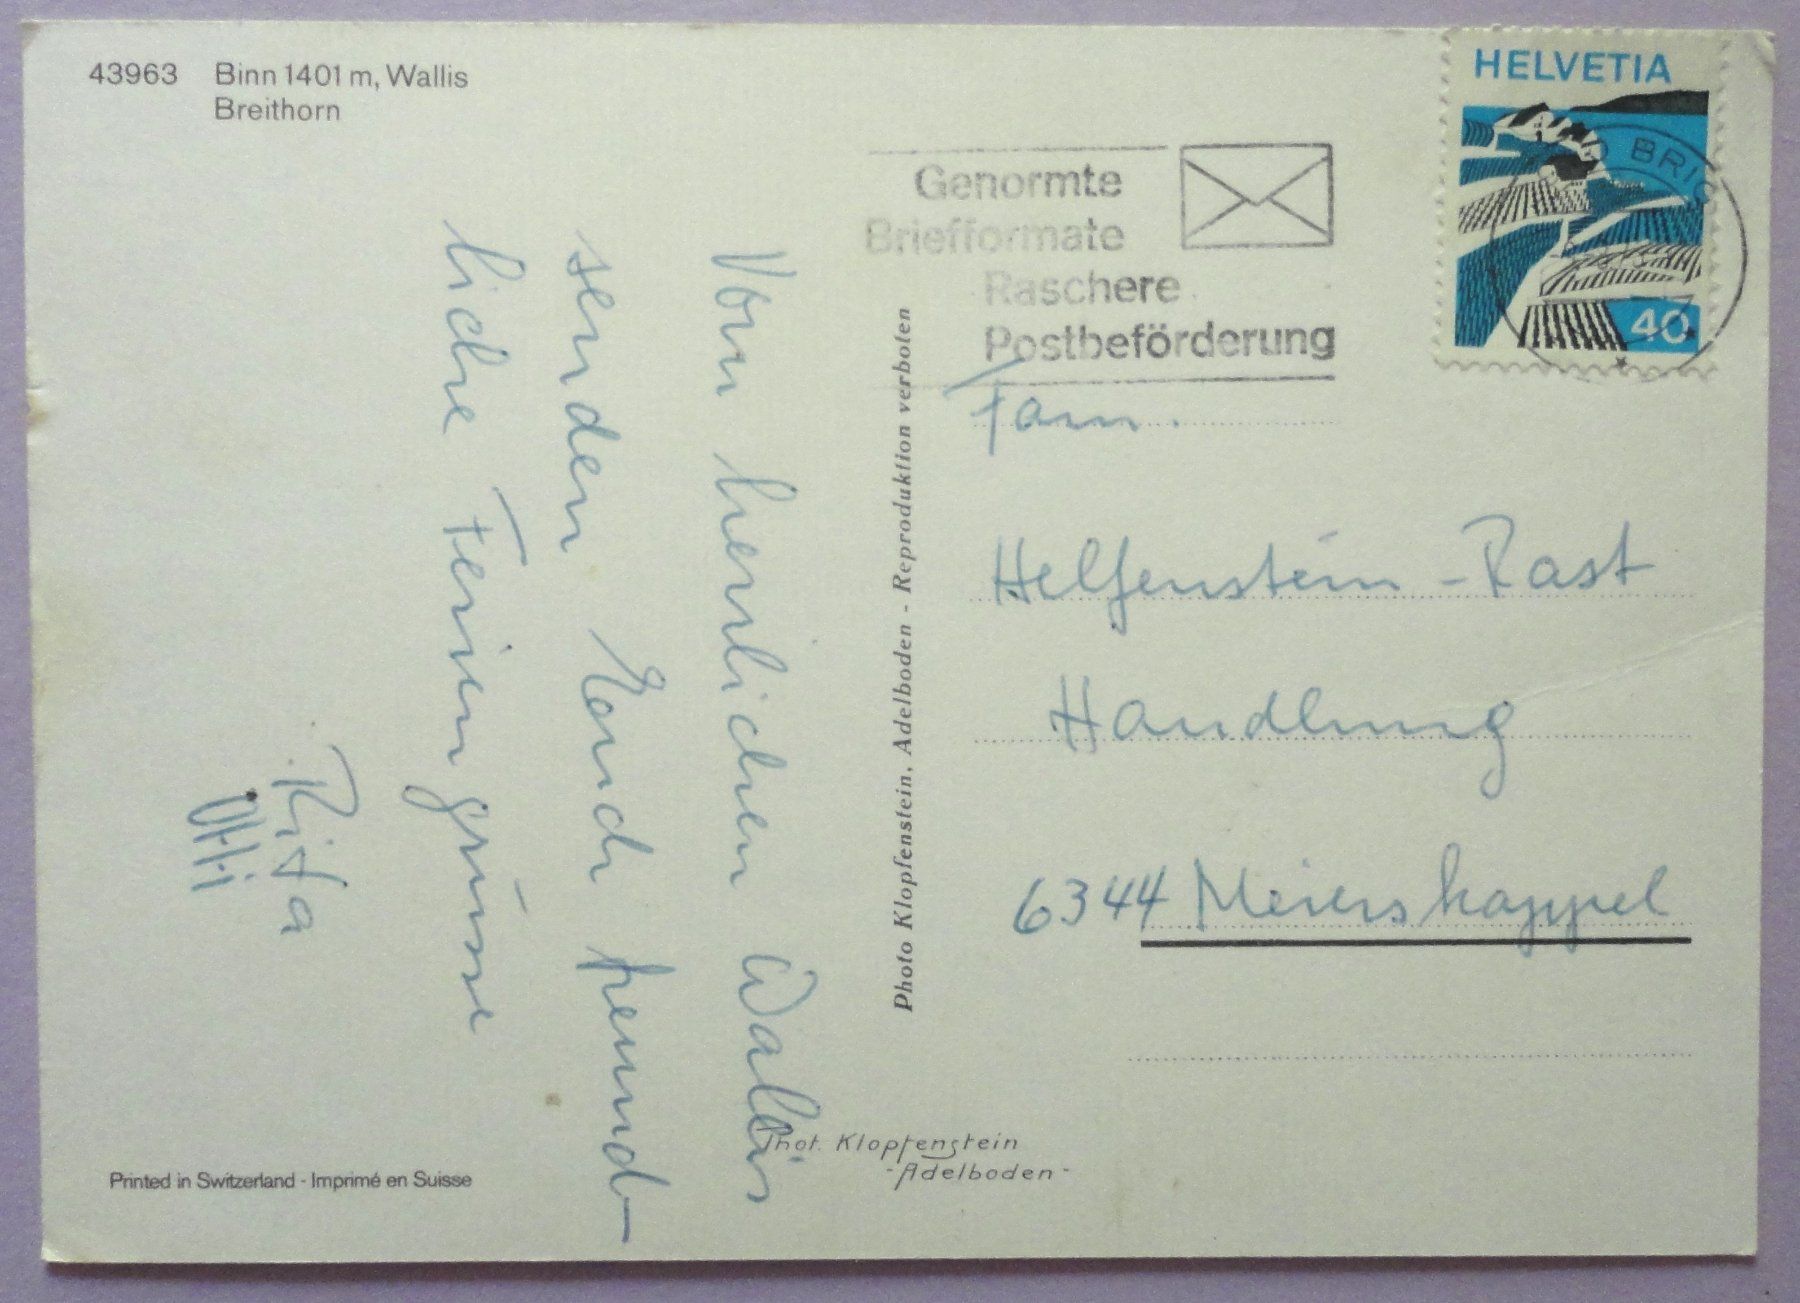 43963 Binn 1401 m, Wallis
Breithorn
HELVETIA
40
BRIG
Genormte
Briefformate
Raschere
Postbeförderung
Vom herrlichen Wallis
senden Euch freund-
liche Feriengrüsse
Rita
Otti
Photo Klopfenstein, Adelboden - Reproduktion verboten
Fam.
Helfenstein-Rast
Handlung
6344 Meierskappel
Phot. Klopfenstein
-Adelboden-
Printed in Switzerland - Imprimé en Suisse